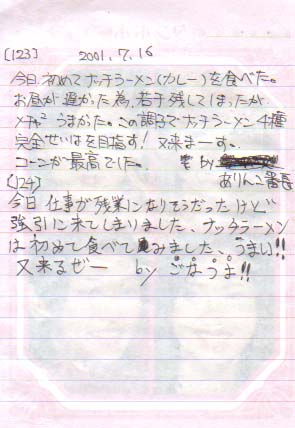 [123] 2001.7.16
今日、初めてナッチラーメン(カレー)を食べた。
お昼が遅かった為、若干残してしまったが
メチャ2 うまかった。この調子でナッチラーメン4種
完全せいはを目指す! 又来まーす。
コーンが最高でした。 by
ありんこ番長
[124]
今日 仕事が残業になりそうだったけど
強引に来てしまいました、ナッチラーメン
は初めて食べてみました、うまい!!
又来るぜー by ごなうま!!